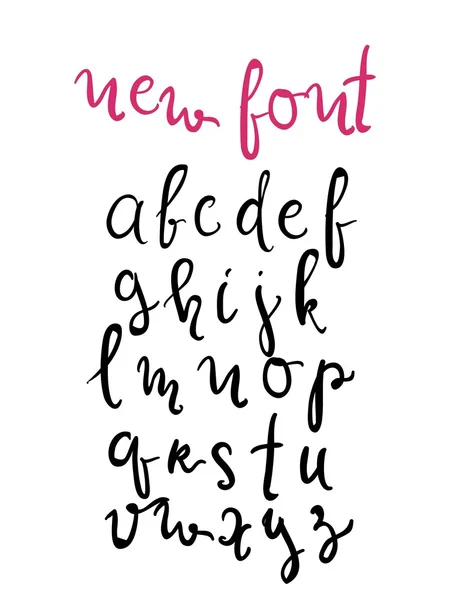 new font
abcdef
ghijk
lmnop
qrstu
vwxyz